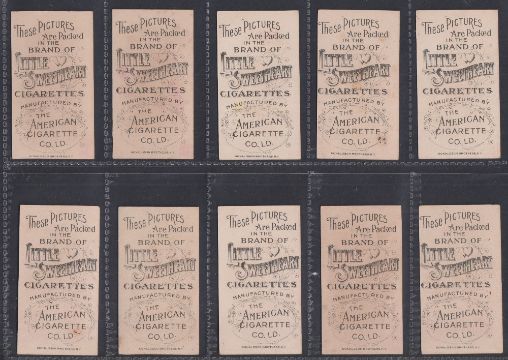 These PICTURES
Are Packed
IN THE
BRAND OF
LITTLE
SWEETHEART
CIGARETTES
MANUFACTURED BY
THE
AMERICAN
CIGARETTE
CO. LD.
These PICTURES
Are Packed
IN THE
BRAND OF
LITTLE
SWEETHEART
CIGARETTES
MANUFACTURED BY
THE
AMERICAN
CIGARETTE
CO. LD.
These PICTURES
Are Packed
IN THE
BRAND OF
LITTLE
SWEETHEART
CIGARETTES
MANUFACTURED BY
THE
AMERICAN
CIGARETTE
CO. LD.
These PICTURES
Are Packed
IN THE
BRAND OF
LITTLE
SWEETHEART
CIGARETTES
MANUFACTURED BY
THE
AMERICAN
CIGARETTE
CO. LD.
These PICTURES
Are Packed
IN THE
BRAND OF
LITTLE
SWEETHEART
CIGARETTES
MANUFACTURED BY
THE
AMERICAN
CIGARETTE
CO. LD.
These PICTURES
Are Packed
IN THE
BRAND OF
LITTLE
SWEETHEART
CIGARETTES
MANUFACTURED BY
THE
AMERICAN
CIGARETTE
CO. LD.
These PICTURES
Are Packed
IN THE
BRAND OF
LITTLE
SWEETHEART
CIGARETTES
MANUFACTURED BY
THE
AMERICAN
CIGARETTE
CO. LD.
These PICTURES
Are Packed
IN THE
BRAND OF
LITTLE
SWEETHEART
CIGARETTES
MANUFACTURED BY
THE
AMERICAN
CIGARETTE
CO. LD.
These PICTURES
Are Packed
IN THE
BRAND OF
LITTLE
SWEETHEART
CIGARETTES
MANUFACTURED BY
THE
AMERICAN
CIGARETTE
CO. LD.
These PICTURES
Are Packed
IN THE
BRAND OF
LITTLE
SWEETHEART
CIGARETTES
MANUFACTURED BY
THE
AMERICAN
CIGARETTE
CO. LD.